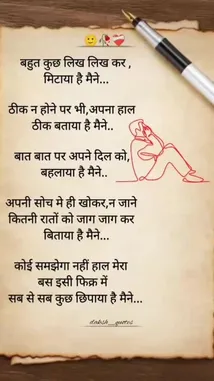 बहुत कुछ लिख लिख कर ,
मिटाया है मैने...
ठीक न होने पर भी,अपना हाल
ठीक बताया है मैने..
बात बात पर अपने दिल को,
बहलाया है मैने..
अपनी सोच मे ही खोकर,न जाने
कितनी रातों को जाग जाग कर
बिताया है मैने...
कोई समझेगा नहीं हाल मेरा
बस इसी फिक्र में
सब से सब कुछ छिपाया है मैने...